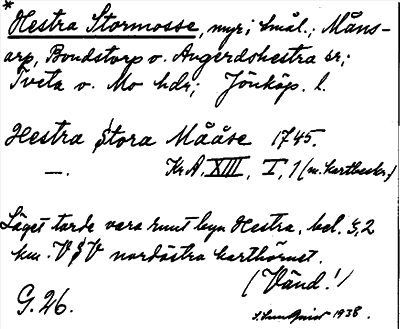 *
Hestra Stormosse, myr i Smål.; Måns-
arp, Bondstorp o. Angerdshestra sr;
Tveta o. Mo hdr; Jönköp. l.
Hestra Stora Mååse 1745.
—. Kr.A. XIII, I, 1 (m. kartbeskr.)
Läget torde vara runt byn Hestra, bel. 5,2
km. VSV nordöstra karthörnet.
(Vänd!)
G. 26. 1938.